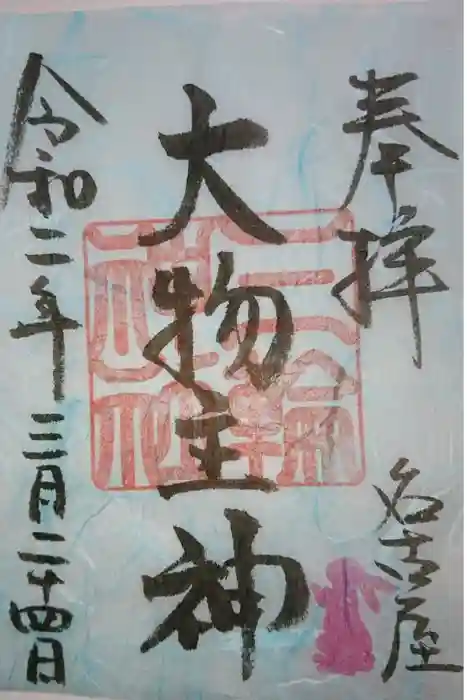 奉拝
名古屋
大物主神
令和二年三月二十四日
三輪神社